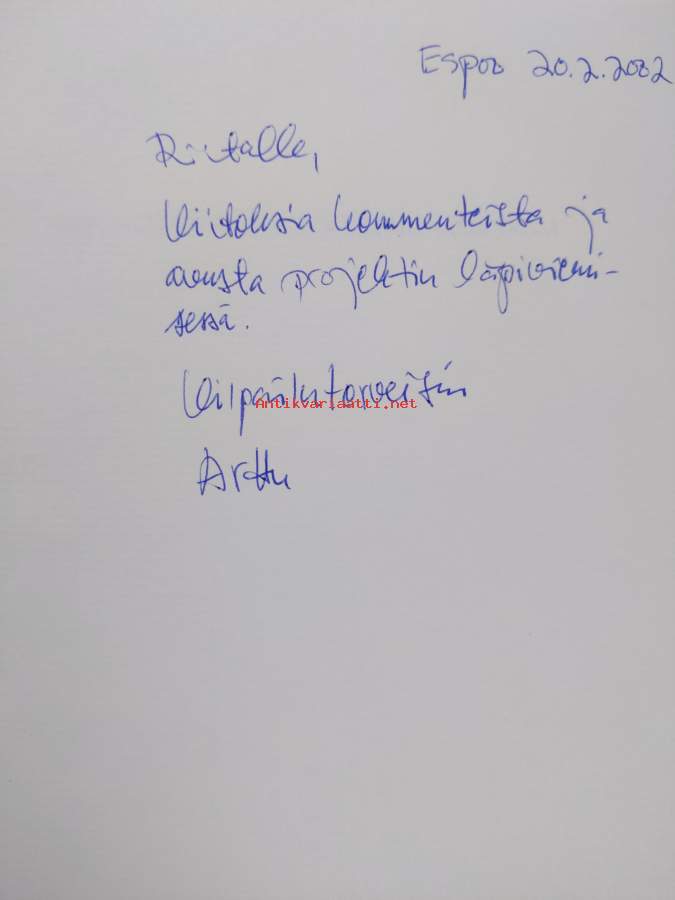 Espoo 20.2.2002
Riitalle,
Kiitoksia kommenteista ja
avusta projektin läpiviemi-
sessä.
Antikvariaatti.net
Arttu